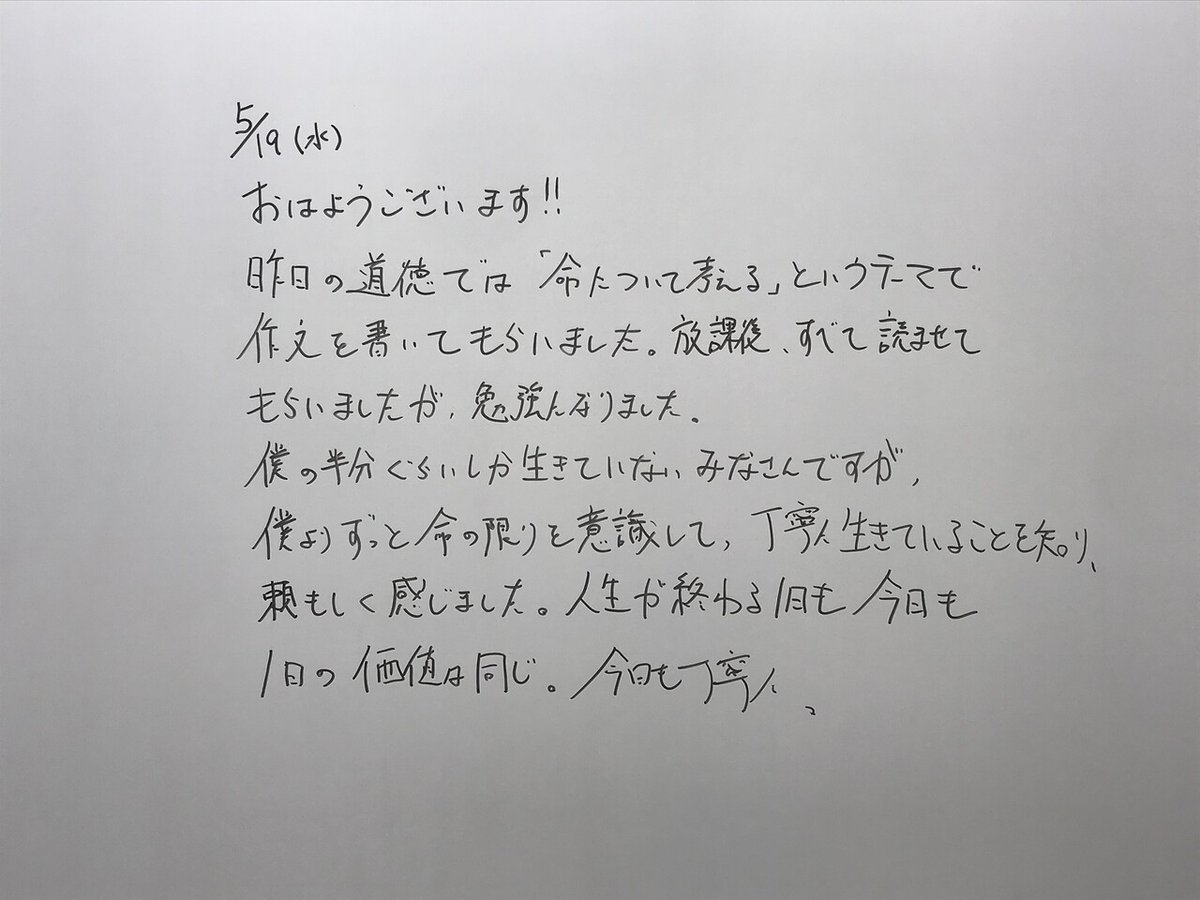 5/19(水)
おはようございます!!
昨日の道徳では「命について考える」というテーマで
作文を書いてもらいました。放課後、すべて読ませて
もらいましたが、勉強になりました。
僕の半分ぐらいしか生きていないみなさんですが、
僕よりずっと命の限りを意識して、丁寧に生きていることを知り、
頼もしく感じました。人生が終わる1日も今日も
1日の価値は同じ。今日も丁寧に。